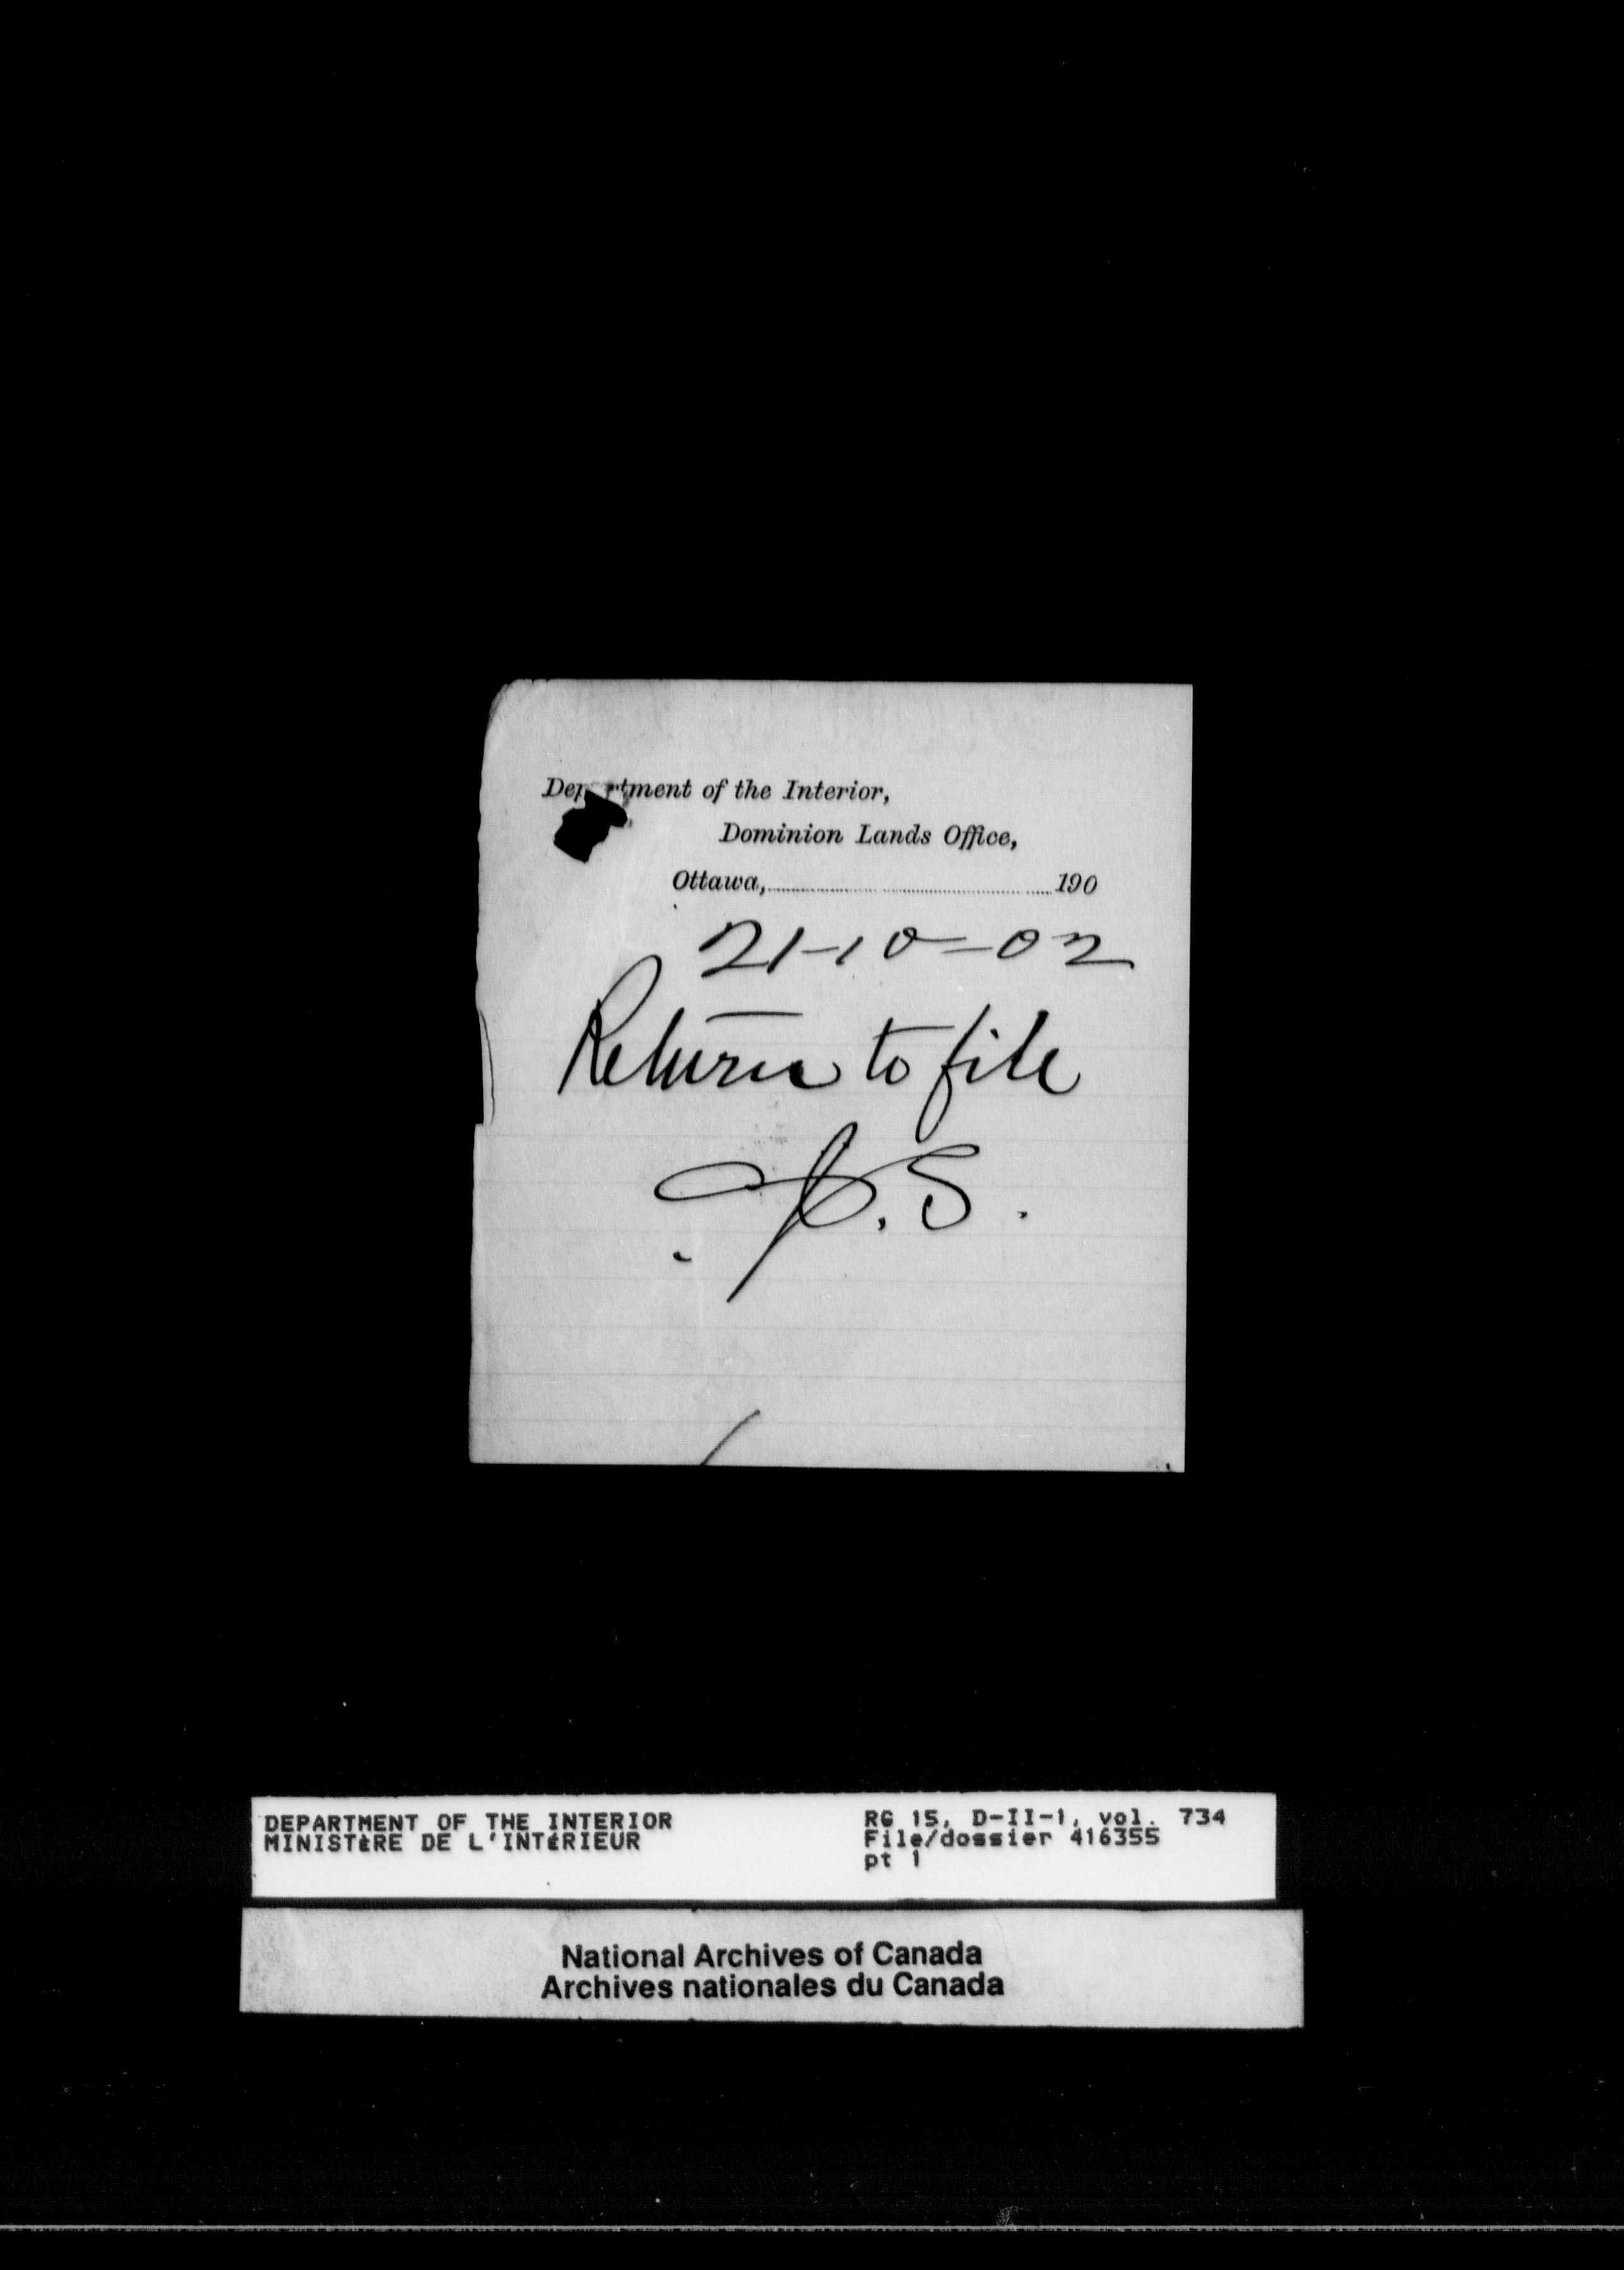 Department of the Interior,
Dominion Lands Office,
Ottawa,..............................190
21-10-02
Return to file
DEPARTMENT OF THE INTERIOR
MINISTÈRE DE L'INTÉRIEUR
RG 15, D-II-1, vol. 734
File/dossier 416355
pt 1
National Archives of Canada
Archives nationales du Canada